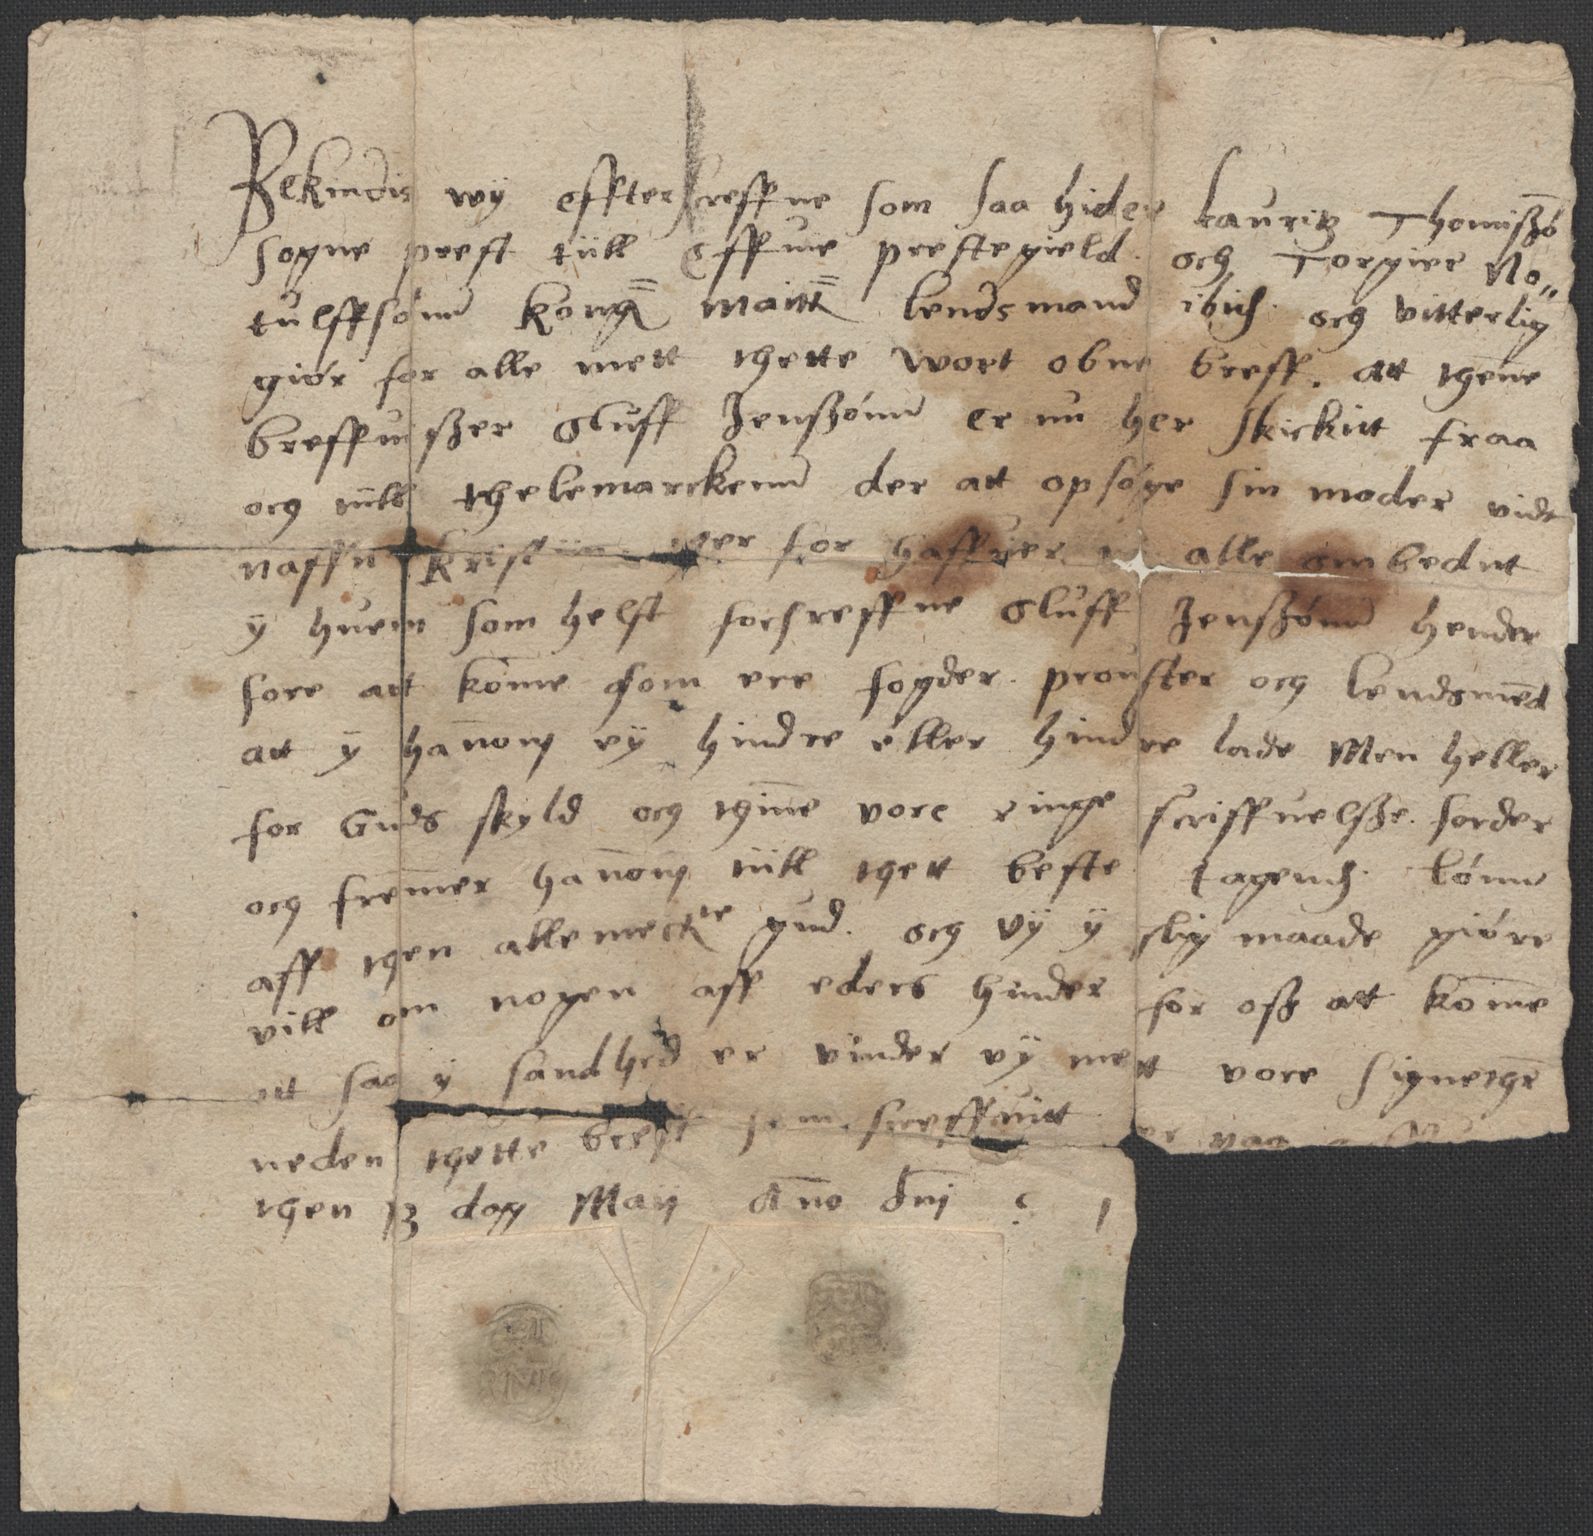 Bekindis wÿ effterscreffne som saa hider Lauritz Thomißø̄
sogne prest tiill Effuie prestegield. och Torgier No„
tulffsønn kong: maitt: lendsmand ibid: och vitterlig
giør for alle mett thette wort obne breff. att thene
breffuißer Oluff Jenßønn er nu her skickitt fraa
och tiill thelemarckenn der att opsøge sin moder vidt
naffn Kristiin ther for haffuer alle ombedit
ÿ huem som helst forsreffne Oluff Jenßønn hender
fore att kōme som ere fogder. prouster och lendsmēd
att ÿ hānom eÿ hindre eller hindre lade Men heller
for Guds skyld och thīne vore ringe scriffuelße. forder
och fremer hānom tiill thett beste tagend: lønn
aff then allemectte gud. och vÿ ÿ slig maade giøre
vill om nogen aff eders hender for oß att kōme
att saa ÿ sandhed er vinder vÿ mett vore signethr̄
neden thette breff som screffuitt
then 13 dag Maij Āno dn̄i